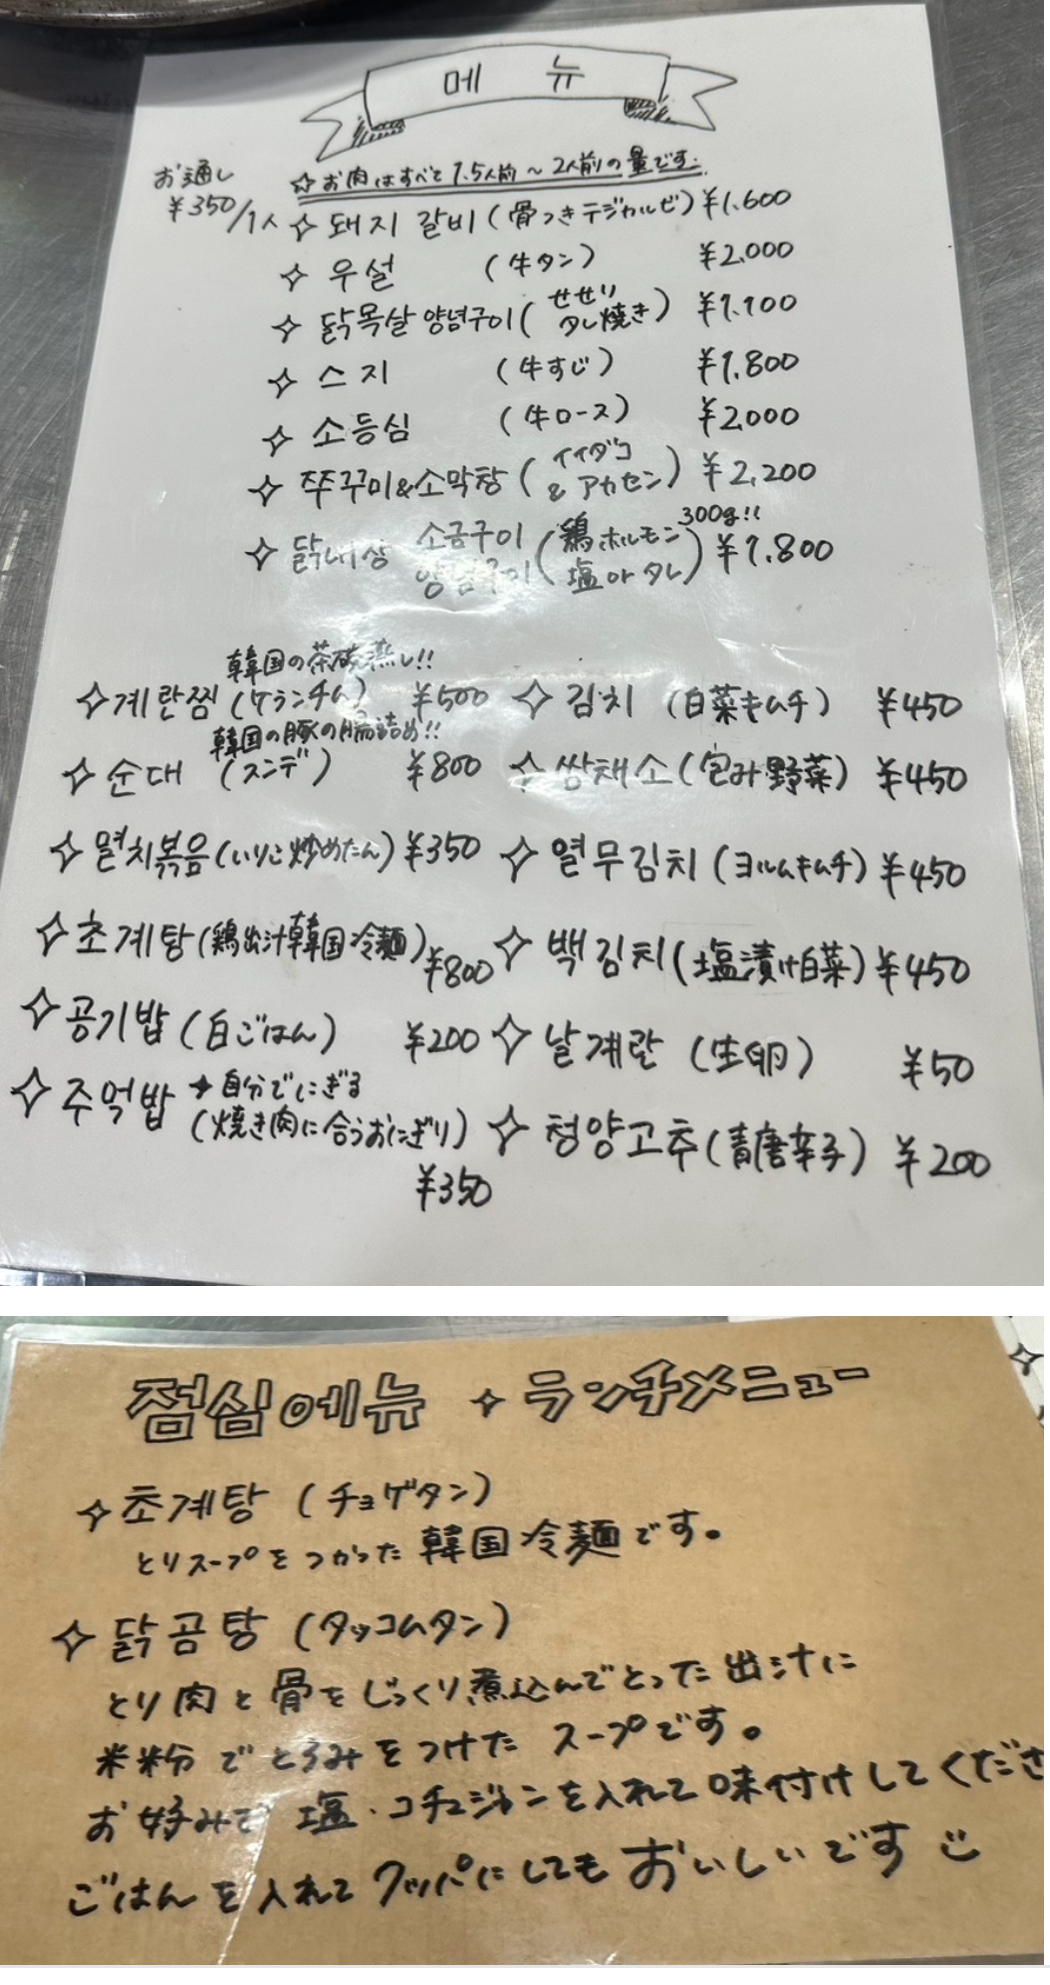 메 뉴
お通し
¥350/1人
☆お肉はすべて1.5人前～2人前の量です.
✧ 돼지 갈비 (骨つきテジカルビ) ¥1.600
✧ 우설 (牛タン) ¥2.000
✧ 닭목살 양념구이 (せせりタレ焼き) ¥1.100
✧ 스지 (牛すじ) ¥1.800
✧ 소등심 (牛ロース) ¥2.000
✧ 쭈꾸미&소막창 (イイダコ & アカセン) ¥2,200
✧ 닭내장 소금구이 양념구이 (鶏ホルモン 塩orタレ) 300g!! ¥1.800
韓国の茶碗蒸し!!
✧계란찜 (ケランチム) ¥500
韓国の豚の腸詰め!!
✧순대 (スンデ) ¥800
✧멸치볶음 (いりこ炒めたん) ¥350
✧초계탕 (鶏出汁韓国冷麺) ¥800
✧공기밥 (白ごはん) ¥200
✧주먹밥 → 自分でにぎる
(焼き肉に合うおにぎり)
¥350
✧김치 (白菜キムチ) ¥450
✧쌈채소 (包み野菜) ¥450
✧열무김치 (ヨルムキムチ) ¥450
✧백김치 (塩漬け白菜) ¥450
✧날계란 (生卵) ¥50
✧청양고추 (青唐辛子) ¥200
점심메뉴 ✧ ランチメニュー
✧초계탕 (チョゲタン)
とりスープをつかった韓国冷麺です。
✧닭곰탕 (タッコムタン)
とり肉と骨をじっくり煮込んでとった出汁に
米粉でとろみをつけたスープです。
お好みで塩・コチュジャンを入れて味付けしてくださ
ごはんを入れてクッパにしてもおいしいです